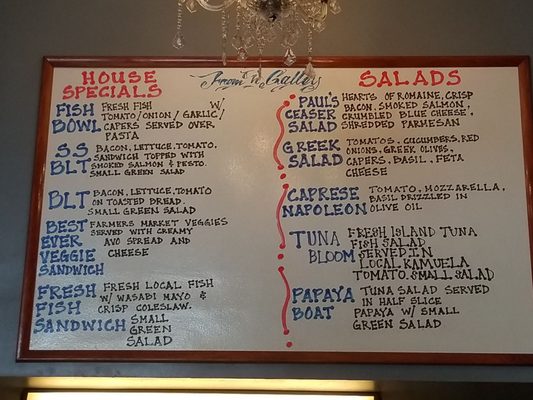 From the Galley
HOUSE
SPECIALS
FISH
BOWL
FRESH FISH W/
TOMATO/ONION/GARLIC/
CAPERS SERVED OVER
PASTA
S.S
BLT
BACON, LETTUCE, TOMATO.
SANDWICH TOPPED WITH
SMOKED SALMON & PESTO.
SMALL GREEN SALAD
BLT
BACON, LETTUCE, TOMATO
ON TOASTED BREAD.
SMALL GREEN SALAD
BEST
EVER
VEGGIE
SANDWICH
FARMERS MARKET VEGGIES
SERVED WITH CREAMY
AVO SPREAD AND
CHEESE
FRESH
FISH
SANDWICH
FRESH LOCAL FISH
W/ WASABI MAYO &
CRISP COLESLAW.
SMALL
GREEN
SALAD
SALADS
PAUL'S
CEASER
SALAD
HEARTS OF ROMAINE, CRISP
BACON, SMOKED SALMON,
CRUMBLED BLUE CHEESE,
SHREDDED PARMESAN
GREEK
SALAD
TOMATOS, CUCUMBERS, RED
ONIONS, GREEK OLIVES,
CAPERS, BASIL, FETA
CHEESE
CAPRESE
NAPOLEON
TOMATO, MOZZARELLA,
BASIL DRIZZLED IN
OLIVE OIL
TUNA
BLOOM
FRESH ISLAND TUNA
FISH SALAD
SERVED IN
LOCAL KANUELA
TOMATO. SMALL SALAD
PAPAYA
BOAT
TUNA SALAD SERVED
IN HALF SLICE
PAPAYA W/ SMALL
GREEN SALAD